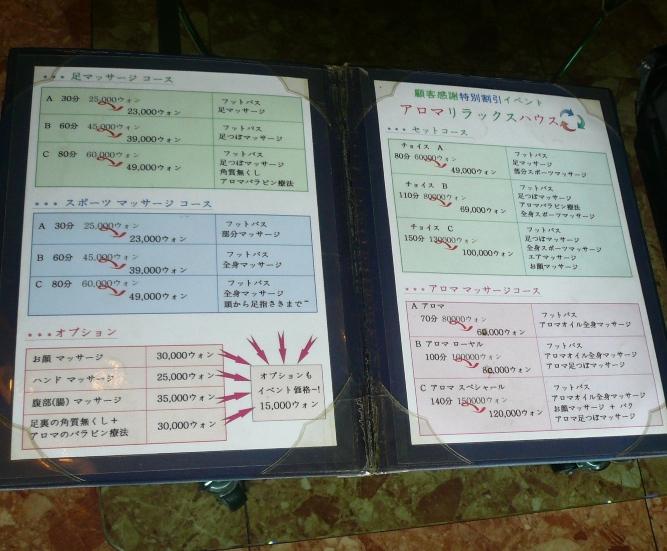 *** 足マッサージ コース
A 30分 25,000ウォン フットバス
23,000ウォン 足マッサージ
B 60分 45,000ウォン フットバス
39,000ウォン 足つぼマッサージ
C 80分 60,000ウォン フットバス
49,000ウォン 足つぼマッサージ
角質無くし
アロマパラピン療法
*** スポーツ マッサージ コース
A 30分 25,000ウォン フットバス
23,000ウォン 部分マッサージ
B 60分 45,000ウォン フットバス
39,000ウォン 全身マッサージ
C 80分 60,000ウォン フットバス
49,000ウォン 全身マッサージ
頭から足指さきまで~
***オプション
お顔 マッサージ 30,000ウォン
ハンド マッサージ 25,000ウォン
腹部(腸) マッサージ 35,000ウォン
足裏の角質無くし+
アロマのパラピン療法 30,000ウォン
オプションも
イベント価格~!
15,000ウォン
顧客感謝特別割引イベント
アロマリラックスハウス
***セットコース
チョイス A フットバス
80分 60000ウォン 足マッサージ
49,000ウォン 部分スポーツマッサージ
チョイス B フットバス
110分 80000ウォン 足つぼマッサージ
69,000ウォン アロマパラピン療法
全身スポーツマッサージ
チョイス C フットバス
150分 ウォン 足つぼマッサージ
100,000ウォン 全身スポーツマッサージ
エアマッサージ
お顔マッサージ
***アロマ マッサージコース
A アロマ フットバス
70分 80000ウォン アロマオイル全身マッサージ
ウォン
B アロマ ローヤル フットバス
100分 100000ウォン アロマオイル全身マッサージ
ウォン アロマ足つぼマッサージ
C アロマ スペシャール フットバス
140分 150000ウォン アロマオイル全身マッサージ
120,000ウォン お顔マッサージ + パク
アロマ足つぼマッサージ